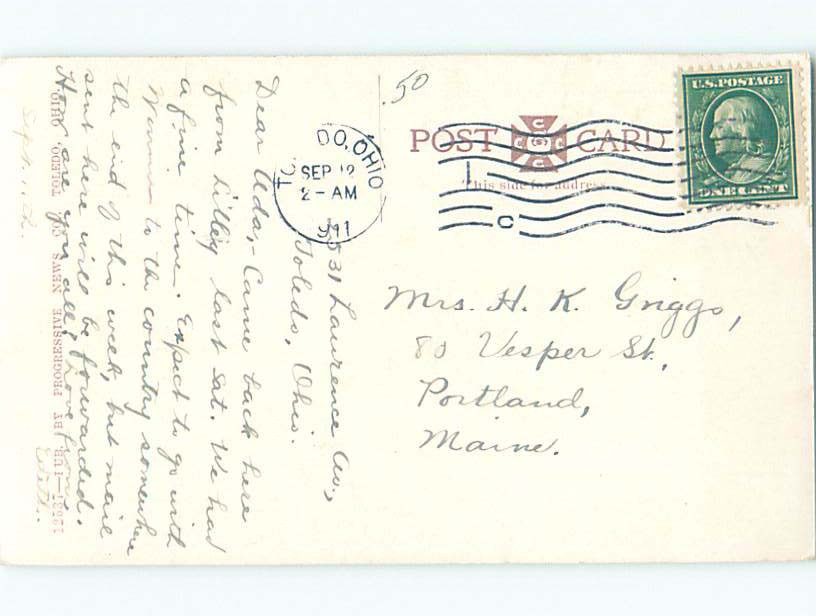 .50
U.S. POSTAGE
ONE CENT
POST CARD
This side for address
TOLEDO, OHIO
SEP 12
2 - AM
1911
C
Mrs. H. K. Griggs,
80 Vesper St.,
Portland,
Maine.
531 Laurence Av.,
Toledo, Ohio.
Dear Ada,- Came back here
from Lilley last Sat. We had
a fine time. Expect to go with
to the country somewhere
the end of this week, but mail
sent here will be forwarded.
How are you all? Love from
Edith.
Sept. 11th.
1263—PUB. BY PROGRESSIVE NEWS CO., TOLEDO, OHIO.